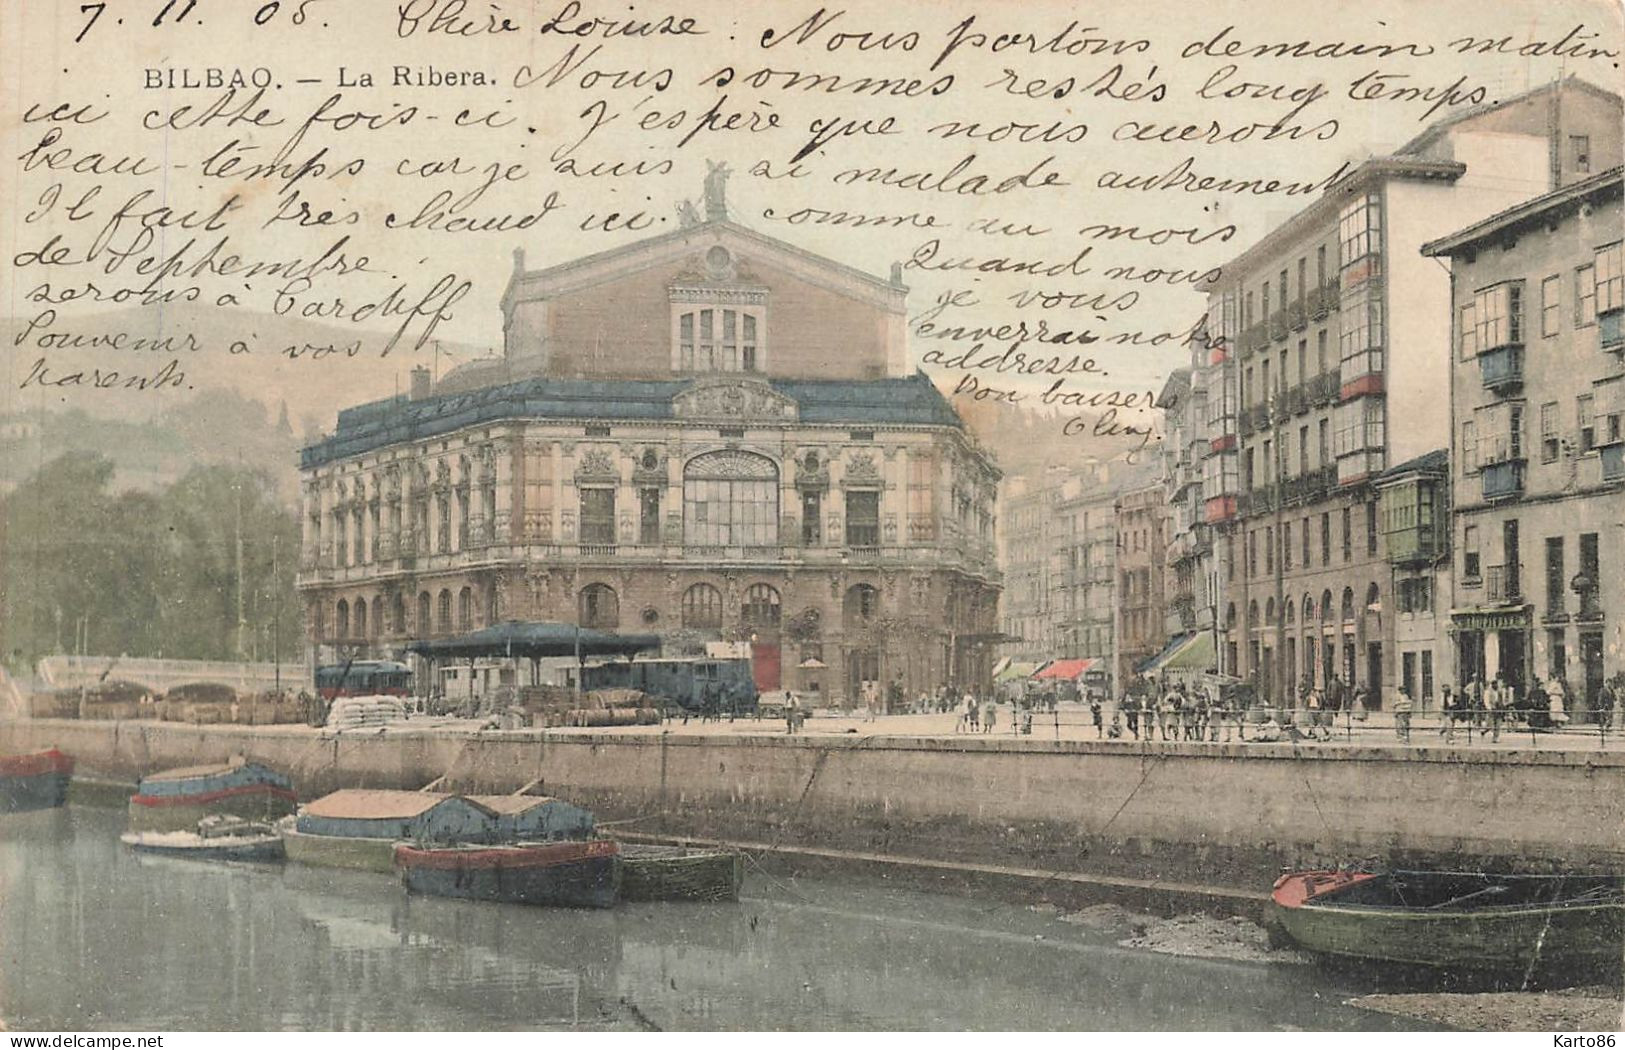 7. 11. 05. Chère Louise : Nous partons demain matin.
BILBAO. — La Ribera. Nous sommes restés long temps
ici cette fois-ci. J'espère que nous aurons
beau-temps car je suis si malade autrement
Il fait très chaud ici. comme au mois
de Septembre. Quand nous
serons à Cardiff je vous
enverrai notre
addresse.
Souvenir à vos
parents.
Bon baisers
Karto86